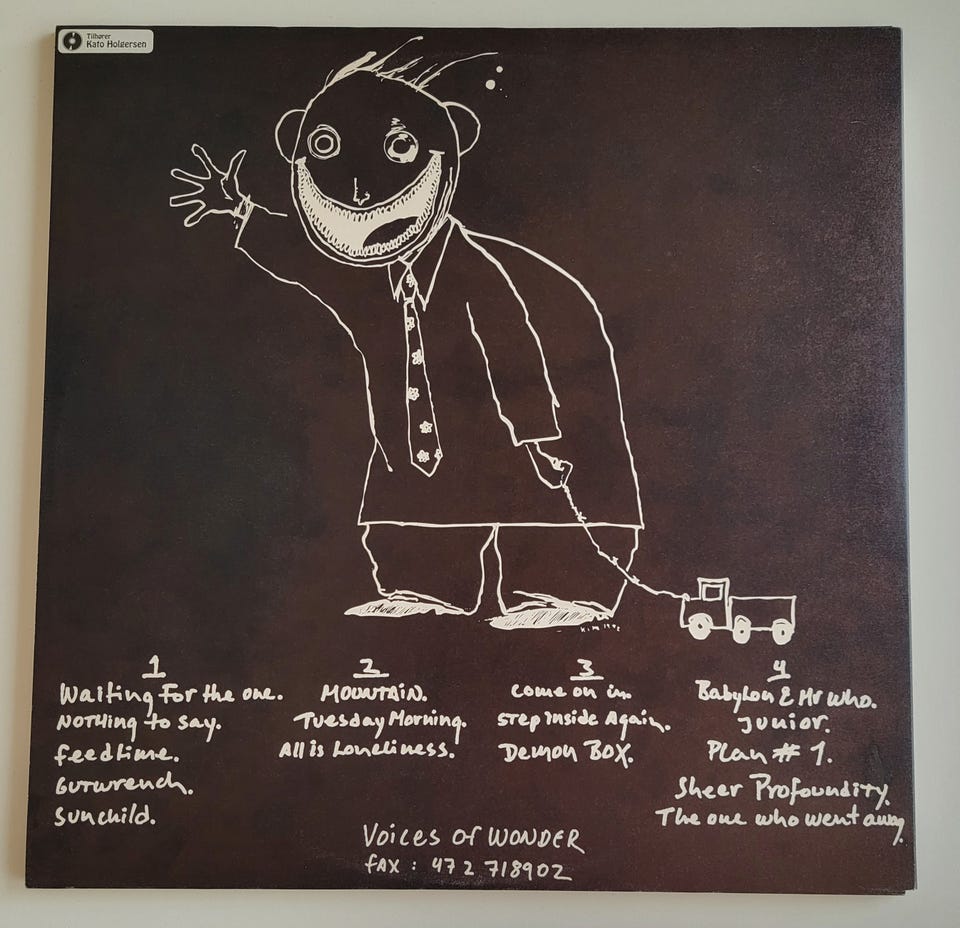 Tilhører
Kato Holgersen
K.M. 1992
1
Waiting For the one.
NOTHING to say.
feedtime.
GUTWrench.
Sunchild.
2
MOUNTAIN.
Tuesday Morning.
All is Loneliness.
3
come on in.
Step inside Again.
Demon BOX.
4
Babylon & Mr Who.
Junior.
Plan # 1.
Sheer Profoundity.
The one who went away.
Voices of WONDER
FAX : 47 2 718902